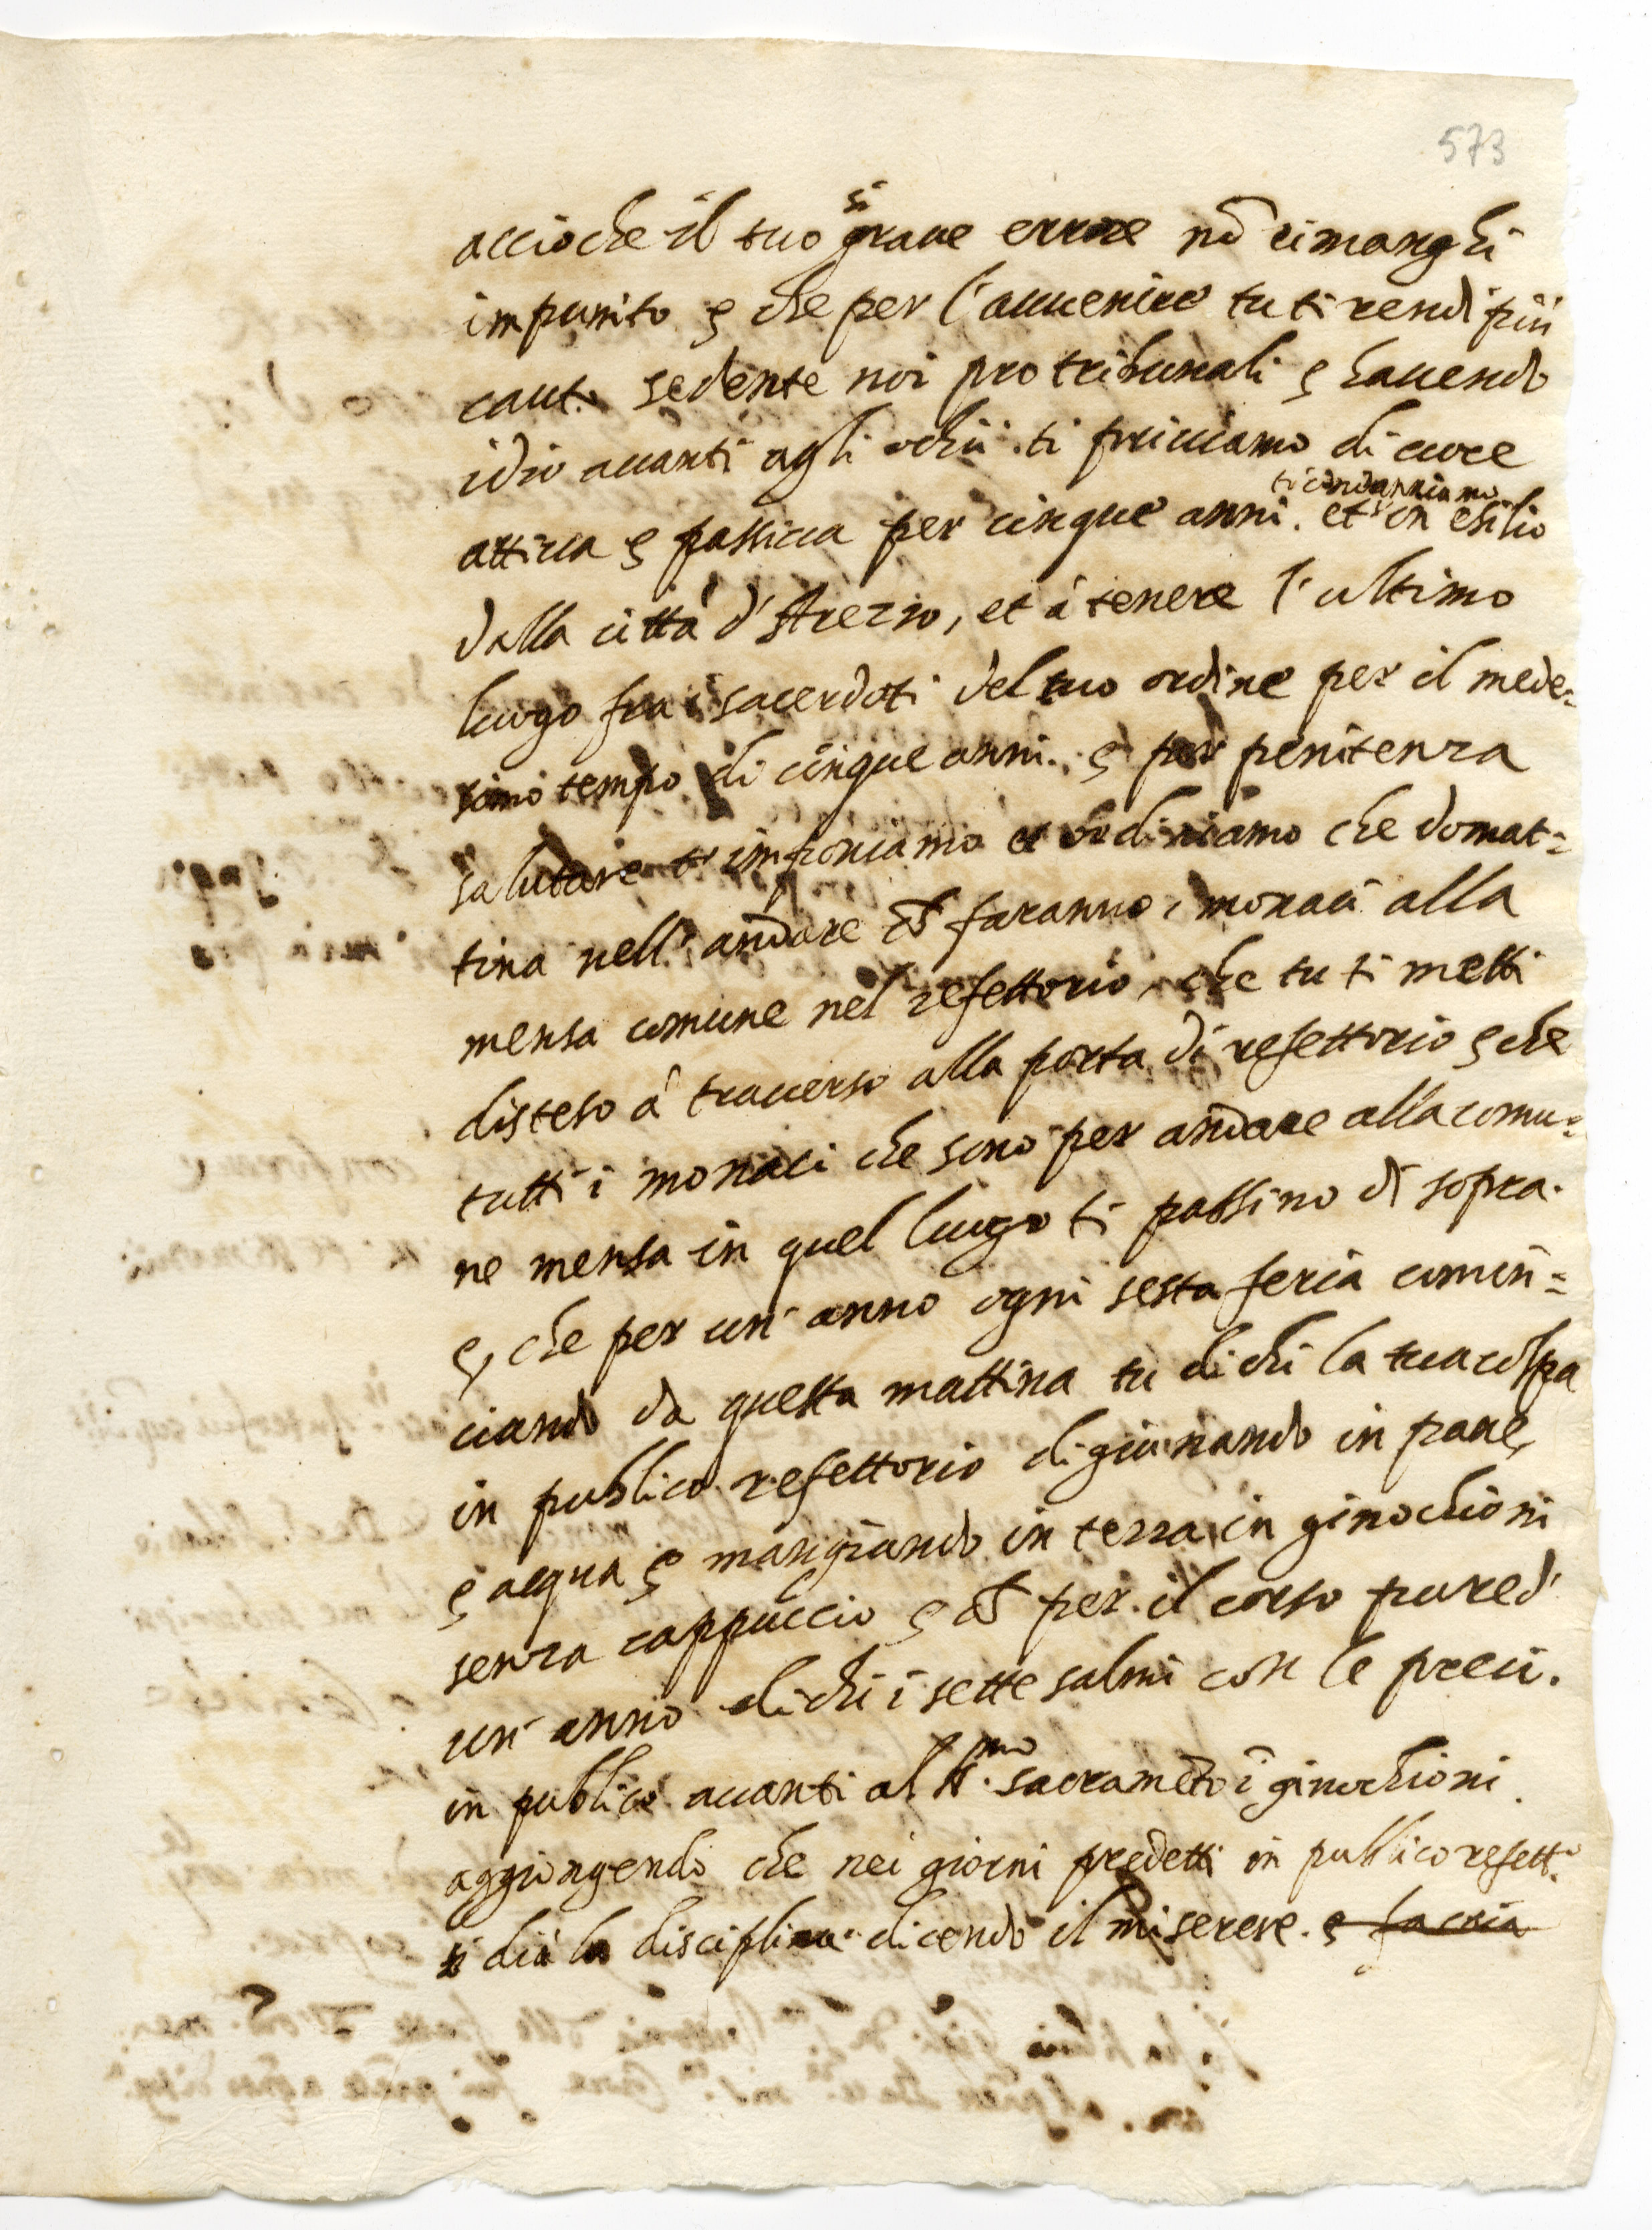 573
accioche il tuo si graue errore nō rimanghi
impunito e che per l'auuenire tu ti rendi più
cauto sedente noi pro tribunali e hauendo
idio auanti agli ochii. ti priuiamo di uoce
attiua e passiua per cinque anni. et ti condanniamo in esilio
dalla città d'Arezzo, et à tenere l'ultimo
luogo fra i sacerdoti del tuo ordine per il mede=
simo tempo di cinque anni. e per penitenza
salutare t' imponiamo et ordiniamo che domat=
tina nell' andare che faranno i monaci alla
mensa comune nel refettorio, che tu ti metti
disteso à trauerso alla porta di refettorio e che
tutti i monaci che sono per andare alla comu=
ne mensa in quel luogo ti passino di sopra.
e, che per un' anno ogni sesta feria comin=
ciando da questa mattina tu dichi la tua colpa
in publico refettorio digiunando in pane,
e acqua e mangiando in terra in ginochioni
senza cappuccio e che per il corso pure d'
un' anno dichi i sette salmi con le preci.
in publico auanti al SS.mo sacramēto ī ginochioni.
aggiongendo che nei giorni predetti in publico refett.o
ti dia la disciplina dicendo il miserere. e faccia